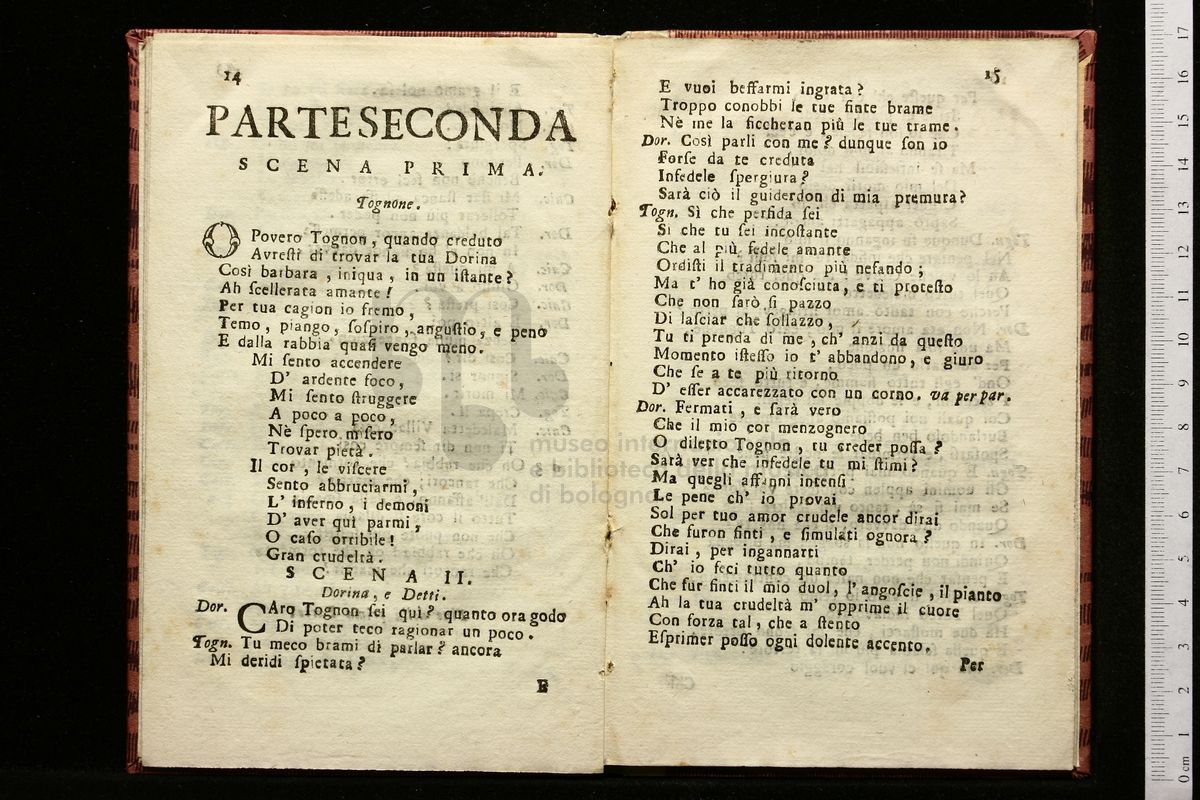 14
PARTE SECONDA
SCENA PRIMA.
Tognone.
O Povero Tognon, quando creduto
Avreſti di trovar la tua Dorina
Così barbara, iniqua, in un iſtante?
Ah ſcellerata amante!
Per tua cagion io fremo,
Temo, piango, ſoſpiro, anguſtio, e peno
E dalla rabbia quaſi vengo meno.
Mi ſento accendere
D' ardente foco,
Mi ſento ſtruggere
A poco a poco,
Nè ſpero miſero
Trovar pietà.
Il cor, le viſcere
Sento abbruciarmi,
L' inferno, i demoni
D' aver quì parmi,
O caſo orribile!
Gran crudeltà.
SCENA II.
Dorina, e Detti.
Dor. CAro Tognon ſei quì? quanto ora godo
Di poter teco ragionar un poco.
Togn. Tu meco brami di parlar? ancora
Mi deridi ſpietata?
E
15
E vuoi beffarmi ingrata?
Troppo conobbi le tue finte brame
Nè me la ficcheran più le tue trame.
Dor. Così parli con me? dunque ſon io
Forſe da te creduta
Infedele ſpergiura?
Sarà ciò il guiderdon di mia premura?
Togn. Sì che perfida ſei
Si che tu ſei incoſtante
Che al più fedele amante
Ordiſti il tradimento più nefando;
Ma t' ho già conoſciuta, e ti proteſto
Che non ſarò ſi pazzo
Di laſciar che ſollazzo,
Tu ti prenda di me, ch' anzi da queſto
Momento iſteſſo io t' abbandono, e giuro
Che ſe a te più ritorno
D' eſſer accarezzato con un corno. va per par.
Dor. Fermati, e ſarà vero
Che il mio cor menzognero
O diletto Tognon, tu creder poſſa?
Sarà ver che infedele tu mi ſtimi?
Ma quegli affanni intenſi
Le pene ch' io provai
Sol per tuo amor crudele ancor dirai
Che furon finti, e ſimulati ognora?
Dirai, per ingannarti
Ch' io feci tutto quanto
Che fur finti il mio duol, l' angoſcie, il pianto
Ah la tua crudeltà m' opprime il cuore
Con forza tal, che a ſtento
Eſprimer poſſo ogni dolente accento.
Per
museo internazionale
e biblioteca della musica
di bologna
0 cm 1 2 3 4 5 6 7 8 9 10 11 12 13 14 15 16 17